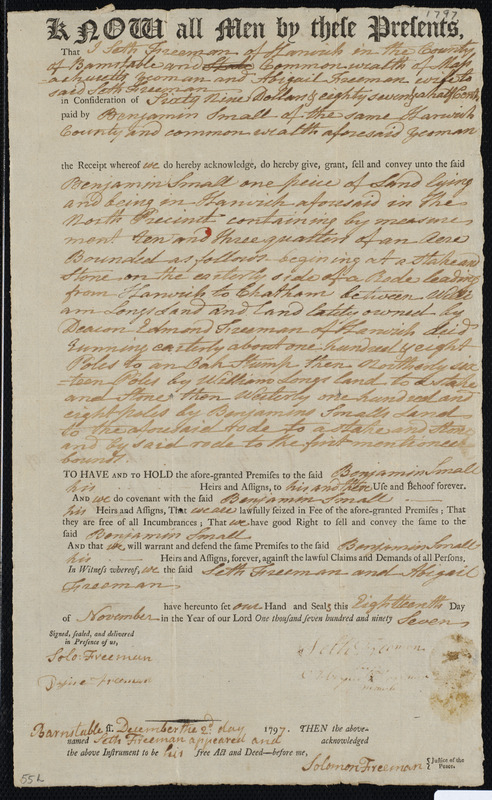 1797
KNOW all Men by these Presents,
That I Seth Freeman of Harwich in the County
of Barnstable and Common wealth of Mass
achusetts yeoman and Abigail Freeman wife to
said Seth Freeman
in Consideration of Sixty Nine Dollars & eighty seven & a half Cents
paid by Benjamin Small of the same Harwich
County and common wealth aforesaid yeoman
the Receipt whereof we do hereby acknowledge, do hereby give, grant, sell and convey unto the said
Benjamin Small one peice of Land lying
and being in Harwich aforesaid in the
North Precinct containing by measure
ment ten and three quarters of an Acre
Bounded as follows begining at a Stake and
Stone on the easterly side of a Rode leading
from Harwich to Chatham between Willi
am Longs Land and land lately owned by
Deacon Edmond Freeman of Harwich decd
Running easterly about one hundred & eight
Poles to an Oak Stump then Northerly six
teen Poles by William Longs land to a Stake
and Stone then Westerly one hundred and
eight poles by Benjamin Smalls Land
to the aforesaid rode to a Stake and Stone
and by said rode to the first mentioned
bound
TO HAVE AND TO HOLD the afore-granted Premises to the said Benjamin Small
his Heirs and Assigns, to his and their Use and Behoof forever.
AND we do covenant with the said Benjamin Small
his Heirs and Assigns, That we are lawfully seized in Fee of the afore-granted Premises; That
they are free of all Incumbrances; That we have good Right to sell and convey the same to the
said Benjamin Small
AND that we will warrant and defend the same Premises to the said Benjamin Small
his Heirs and Assigns, forever, against the lawful Claims and Demands of all Persons,
In Witness whereof, we the said Seth Freeman and Abigail
Freeman
have hereunto set our Hand and Seals this Eighteenth Day
of November in the Year of our Lord One thousand seven hundred and ninety Seven
Signed, sealed, and delivered
in Presence of us,
Solo Freeman
Freeman
Seth Freeman
Abigail Freeman
Barnstable ss. December the 2d day 1797. THEN the above-
named Seth Freeman appeared and acknowledged
the above Instrument to be his free Act and Deed—before me,
Solomon Freeman Justice of the Peace.
55L